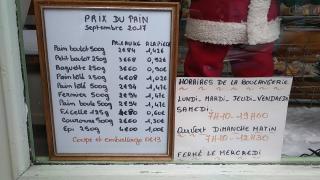 PRIX DU PAIN
Septembre 2017
PRIX AU KG A LA PIECE
Pain boulot 500g 2€84 1,42€
Petit boulot 250g 3€68 0,92€
Baguette 250g 3€60 0,90€
Pain 4€08 1,02€
Pain 500g 2€94 1,47€
Fermier 500g 2€94 1,47€
Pain 500g 2€94 1,47€
Ficelle 125g 4€80 0,60€
Couronne 500g 2€60 1,30€
Epi 250g 4€00 1,00€
Coupe et emballage 0€13
HORAIRES DE LA BOULANGERIE
LUNDI-MARDI-JEUDI-VENDREDI
SAMEDI:
7H10-19H00
Ouvert DIMANCHE MATIN
7H10-12H30
FERMÉ LE MERCREDI